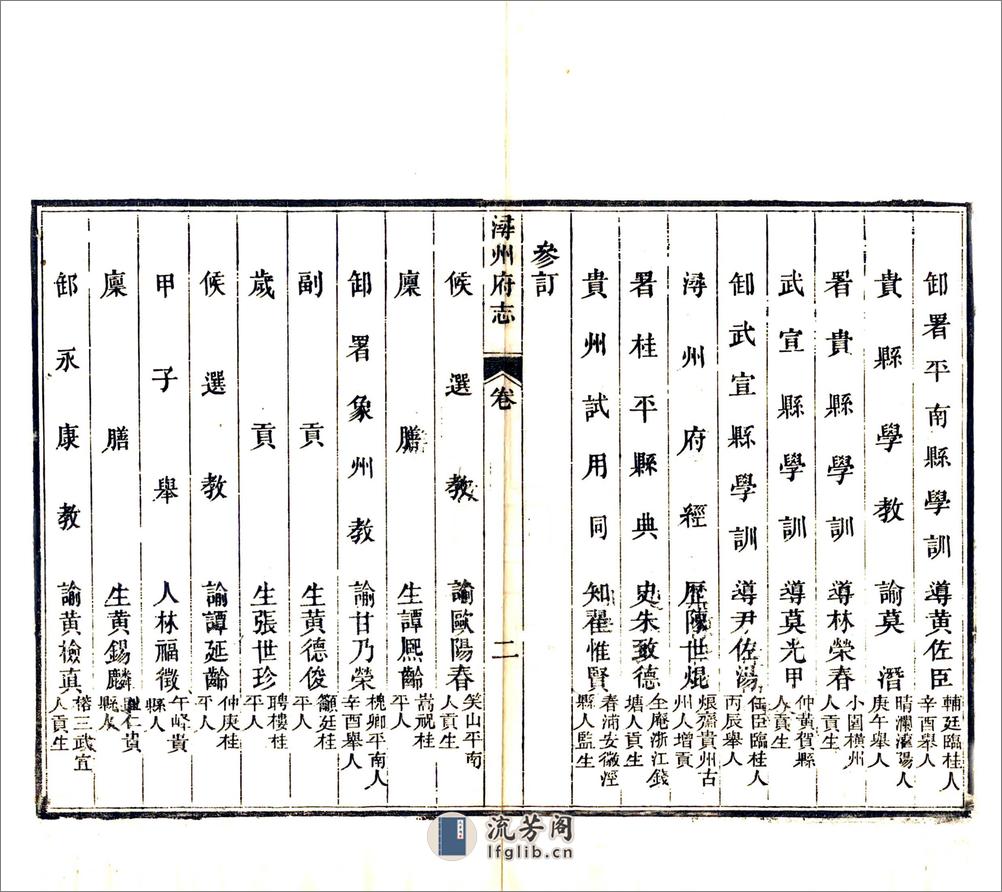 卸署平南縣學訓導黃佐臣 輔廷臨桂人辛酉舉人
貴縣學教諭莫潛 晴瀾灌陽人庚午舉人
署貴縣學訓導林榮春 小園橫州人貢生
武宣縣學訓導莫光甲 仲黃賀縣人貢生
卸武宣縣學訓導尹佐湯 任臣臨桂人丙辰舉人
潯州府經歷陳世焜 煨齋貴州古州人增貢
署桂平縣典史朱致德 全庵浙江錢塘人貢生
貴州試用同知翟惟賢 春浦安徽涇縣人監生
參訂
潯州府志
卷
二
候選教諭歐陽春 笑山平南人貢生
廩膳生譚熙齡 嵩祝桂平人
卸署象州教諭甘乃榮 槐卿平南人辛酉舉人
副貢生黃德俊 籲廷桂平人
歲貢生張世珍 聘樓桂平人
候選教諭譚延齡 仲庚桂平人
甲子舉人林福徵 午峰貴縣人
廩膳生黃錫麟 仁貴縣人
卸永康教諭黃檢真 榙三武宣人貢生
流芳阁
lfglib.cn